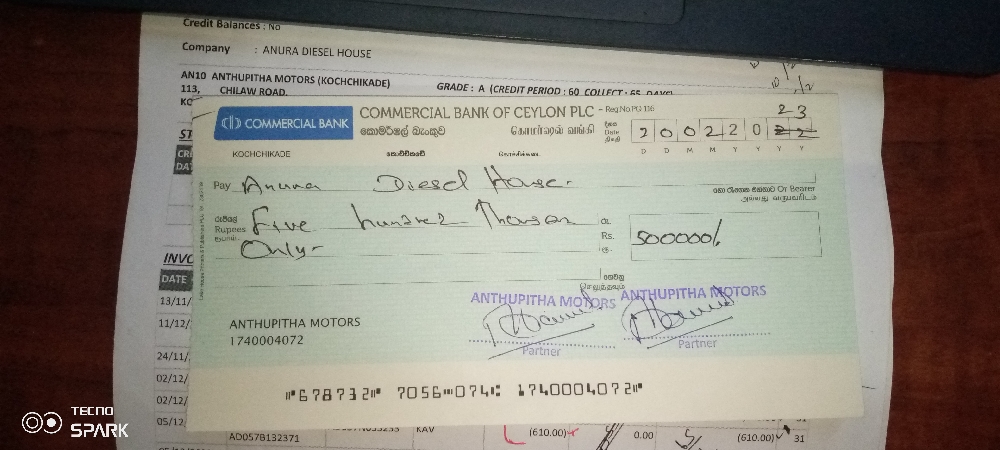 Credit Balances : No
Company : ANURA DIESEL HOUSE
AN10 ANTHUPITHA MOTORS (KOCHCHIKADE)
GRADE : A (CREDIT PERIOD : 60 COLLECT : 65 DAYS)
113, CHILAW ROAD,
COMMERCIAL BANK
COMMERCIAL BANK OF CEYLON PLC - Reg.No PQ 116
කොමර්ෂල් බැංකුව கொமர்ஷல் வங்கி
දිනය Date திகதி 2 0 0 2 2 0 2 2
2 3
D D M M Y Y Y Y
KOCHCHIKADE කොච්චිකඩේ
Pay Anura Diesel House.
හෝ රැගෙන එනකොට Or Bearer
අல்லது
රුපියල් Rupees ரூபாய் Five hundred Thousan
Only-
රු. Rs. ரூ. 500000/.
ANTHUPITHA MOTORS ANTHUPITHA MOTORS
Partner Partner
ANTHUPITHA MOTORS
1740004072
⑈678732⑈ 7056⑉074⑆ 1740004072⑈
INVO
DATE
13/11/
11/12/
24/11/
02/12/
02/12/
05/12/
KAV (610.00) 0.00 (610.00) 31
AD057B132371
TECNO
SPARK